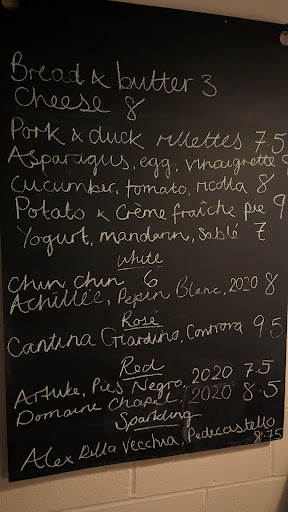 Bread & butter 3
Cheese 8
Pork & duck rillettes 7.5
Asparagus, egg, vinaigrette 9
Cucumber, tomato, ricotta 8
Potato & Crème fraîche pie 9
Yogurt, mandarin, Sablé 7
White
Chin Chin 6
Achillée, Pepin Blanc, 2020 8
Rosé
Cantina Giardino, Controra 9.5
Red
Pies Negro, 2020 7.5
Domaine Chapel, 2020 8.5
Sparkling
Alex Della Vecchia, Pedecastello
8.75